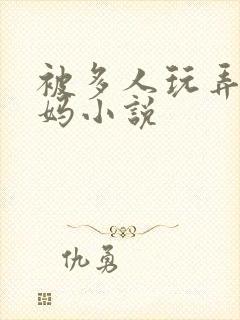 被多人玩弄
妈小説
仇勇